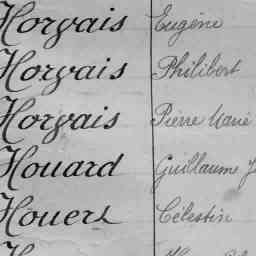 Horvais Eugène
Horvais Philibert
Horvais Pierre Marie
Houard Guillaume
Houert Célestin